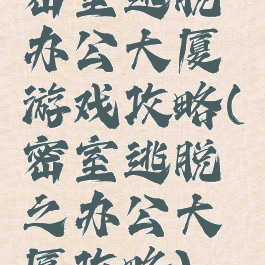 密室逃脱
办公大厦
游戏攻略(
密室逃脱
之办公大
厦攻略)